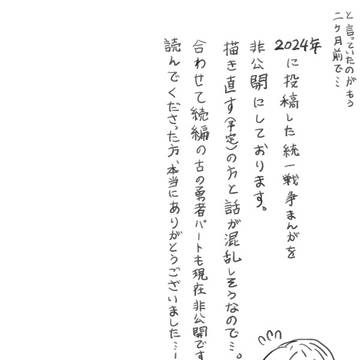 と言っていたのがもう
二ヶ月前で…
2024年に投稿した統一戦争まんがを
非公開にしております。
描き直す(予定)の方と話が混乱しそうなので…。
合わせて続編の古の勇者パートも現在非公開です
読んでくださった方、本当にありがとうございました…!